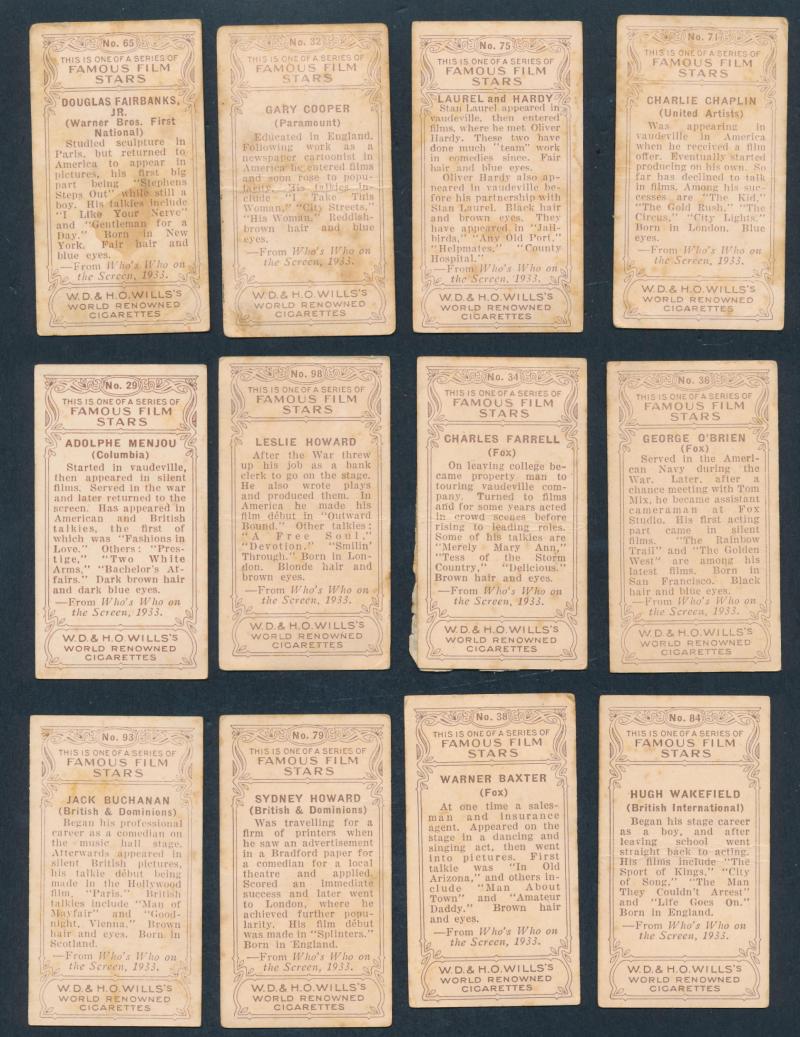 No. 65
THIS IS ONE OF A SERIES OF
FAMOUS FILM
STARS
DOUGLAS FAIRBANKS,
JR.
(Warner Bros. First
National)
Studied sculpture in
Paris, but returned to
America to appear in
pictures, his first big
part being "Stephens
Steps Out" while still a
boy. His talkies include
"I Like Your Nerve"
and "Gentleman for a
Day." Born in New
York. Fair hair and
blue eyes.
—From Who's Who on
the Screen, 1933.
W.D. & H.O. WILLS'S
WORLD RENOWNED
CIGARETTES
No. 32
THIS IS ONE OF A SERIES OF
FAMOUS FILM
STARS
GARY COOPER
(Paramount)
Educated in England.
Following work as a
newspaper cartoonist in
America he entered films
and soon rose to popu-
larity. His talkies in-
clude "I Take This
Woman," "City Streets,"
"His Woman." Reddish-
brown hair and blue
eyes.
—From Who's Who on
the Screen, 1933.
W.D. & H.O. WILLS'S
WORLD RENOWNED
CIGARETTES
No. 75
THIS IS ONE OF A SERIES OF
FAMOUS FILM
STARS
LAUREL and HARDY
Stan Laurel appeared in
vaudeville, then entered
films, where he met Oliver
Hardy. These two have
done much "team" work
in comedies since. Fair
hair and blue eyes.
Oliver Hardy also ap-
peared in vaudeville be-
fore his partnership with
Stan Laurel. Black hair
and brown eyes. They
have appeared in "Jail-
birds," "Any Old Port,"
"Helpmates," "County
Hospital."
—From Who's Who on
the Screen, 1933.
W.D. & H.O. WILLS'S
WORLD RENOWNED
CIGARETTES
No. 71
THIS IS ONE OF A SERIES OF
FAMOUS FILM
STARS
CHARLIE CHAPLIN
(United Artists)
Was appearing in
vaudeville in America
when he received a film
offer. Eventually started
producing on his own. So
far has declined to talk
in films. Among his suc-
cesses are "The Kid,"
"The Gold Rush," "The
Circus," "City Lights."
Born in London. Blue
eyes.
—From Who's Who on
the Screen, 1933.
W.D. & H.O. WILLS'S
WORLD RENOWNED
CIGARETTES
No. 29
THIS IS ONE OF A SERIES OF
FAMOUS FILM
STARS
ADOLPHE MENJOU
(Columbia)
Started in vaudeville,
then appeared in silent
films. Served in the war
and later returned to the
screen. Has appeared in
American and British
talkies, the first of
which was "Fashions in
Love." Others: "Pres-
tige," "Two White
Arms," "Bachelor's Af-
fairs." Dark brown hair
and dark blue eyes.
—From Who's Who on
the Screen, 1933.
W.D. & H.O. WILLS'S
WORLD RENOWNED
CIGARETTES
No. 98
THIS IS ONE OF A SERIES OF
FAMOUS FILM
STARS
LESLIE HOWARD
After the War threw
up his job as a bank
clerk to go on the stage.
He also wrote plays
and produced them. In
America he made his
film début in "Outward
Bound." Other talkies:
"A Free Soul,"
"Devotion," "Smilin'
Through." Born in Lon-
don. Blonde hair and
brown eyes.
—From Who's Who on
the Screen, 1933.
W.D. & H.O. WILLS'S
WORLD RENOWNED
CIGARETTES
No. 34
THIS IS ONE OF A SERIES OF
FAMOUS FILM
STARS
CHARLES FARRELL
(Fox)
On leaving college be-
came property man to
touring vaudeville com-
pany. Turned to films
and for some years acted
in crowd scenes before
rising to leading roles.
Some of his talkies are
"Merely Mary Ann,"
"Tess of the Storm
Country," "Delicious."
Brown hair and eyes.
—From Who's Who on
the Screen, 1933.
W.D. & H.O. WILLS'S
WORLD RENOWNED
CIGARETTES
No. 36
THIS IS ONE OF A SERIES OF
FAMOUS FILM
STARS
GEORGE O'BRIEN
(Fox)
Served in the Ameri-
can Navy during the
War. Later, after a
chance meeting with Tom
Mix, he became assistant
cameraman at Fox
Studio. His first acting
part came in silent
films. "The Rainbow
Trail" and "The Golden
West" are among his
latest films. Born in
San Francisco. Black
hair and blue eyes.
—From Who's Who on
the Screen, 1933.
W.D. & H.O. WILLS'S
WORLD RENOWNED
CIGARETTES
No. 93
THIS IS ONE OF A SERIES OF
FAMOUS FILM
STARS
JACK BUCHANAN
(British & Dominions)
Began his professional
career as a comedian on
the music hall stage.
Afterwards appeared in
silent British pictures,
his talkie début being
made in the Hollywood
film, "Paris." British
talkies include "Man of
Mayfair" and "Good-
night, Vienna." Brown
hair and eyes. Born in
Scotland.
—From Who's Who on
the Screen, 1933.
W.D. & H.O. WILLS'S
WORLD RENOWNED
CIGARETTES
No. 79
THIS IS ONE OF A SERIES OF
FAMOUS FILM
STARS
SYDNEY HOWARD
(British & Dominions)
Was travelling for a
firm of printers when
he saw an advertisement
in a Bradford paper for
a comedian for a local
theatre and applied.
Scored an immediate
success and later went
to London, where he
achieved further popu-
larity. His film début
was made in "Splinters."
Born in England.
—From Who's Who on
the Screen, 1933.
W.D. & H.O. WILLS'S
WORLD RENOWNED
CIGARETTES
No. 38
THIS IS ONE OF A SERIES OF
FAMOUS FILM
STARS
WARNER BAXTER
(Fox)
At one time a sales-
man and insurance
agent. Appeared on the
stage in a dancing and
singing act, then went
into pictures. First
talkie was "In Old
Arizona," and others in-
clude "Man About
Town" and "Amateur
Daddy." Brown hair
and eyes.
—From Who's Who on
the Screen, 1933.
W.D. & H.O. WILLS'S
WORLD RENOWNED
CIGARETTES
No. 84
THIS IS ONE OF A SERIES OF
FAMOUS FILM
STARS
HUGH WAKEFIELD
(British International)
Began his stage career
as a boy, and after
leaving school went
straight back to acting.
His films include "The
Sport of Kings," "City
of Song," "The Man
They Couldn't Arrest"
and "Life Goes On."
Born in England.
—From Who's Who on
the Screen, 1933.
W.D. & H.O. WILLS'S
WORLD RENOWNED
CIGARETTES